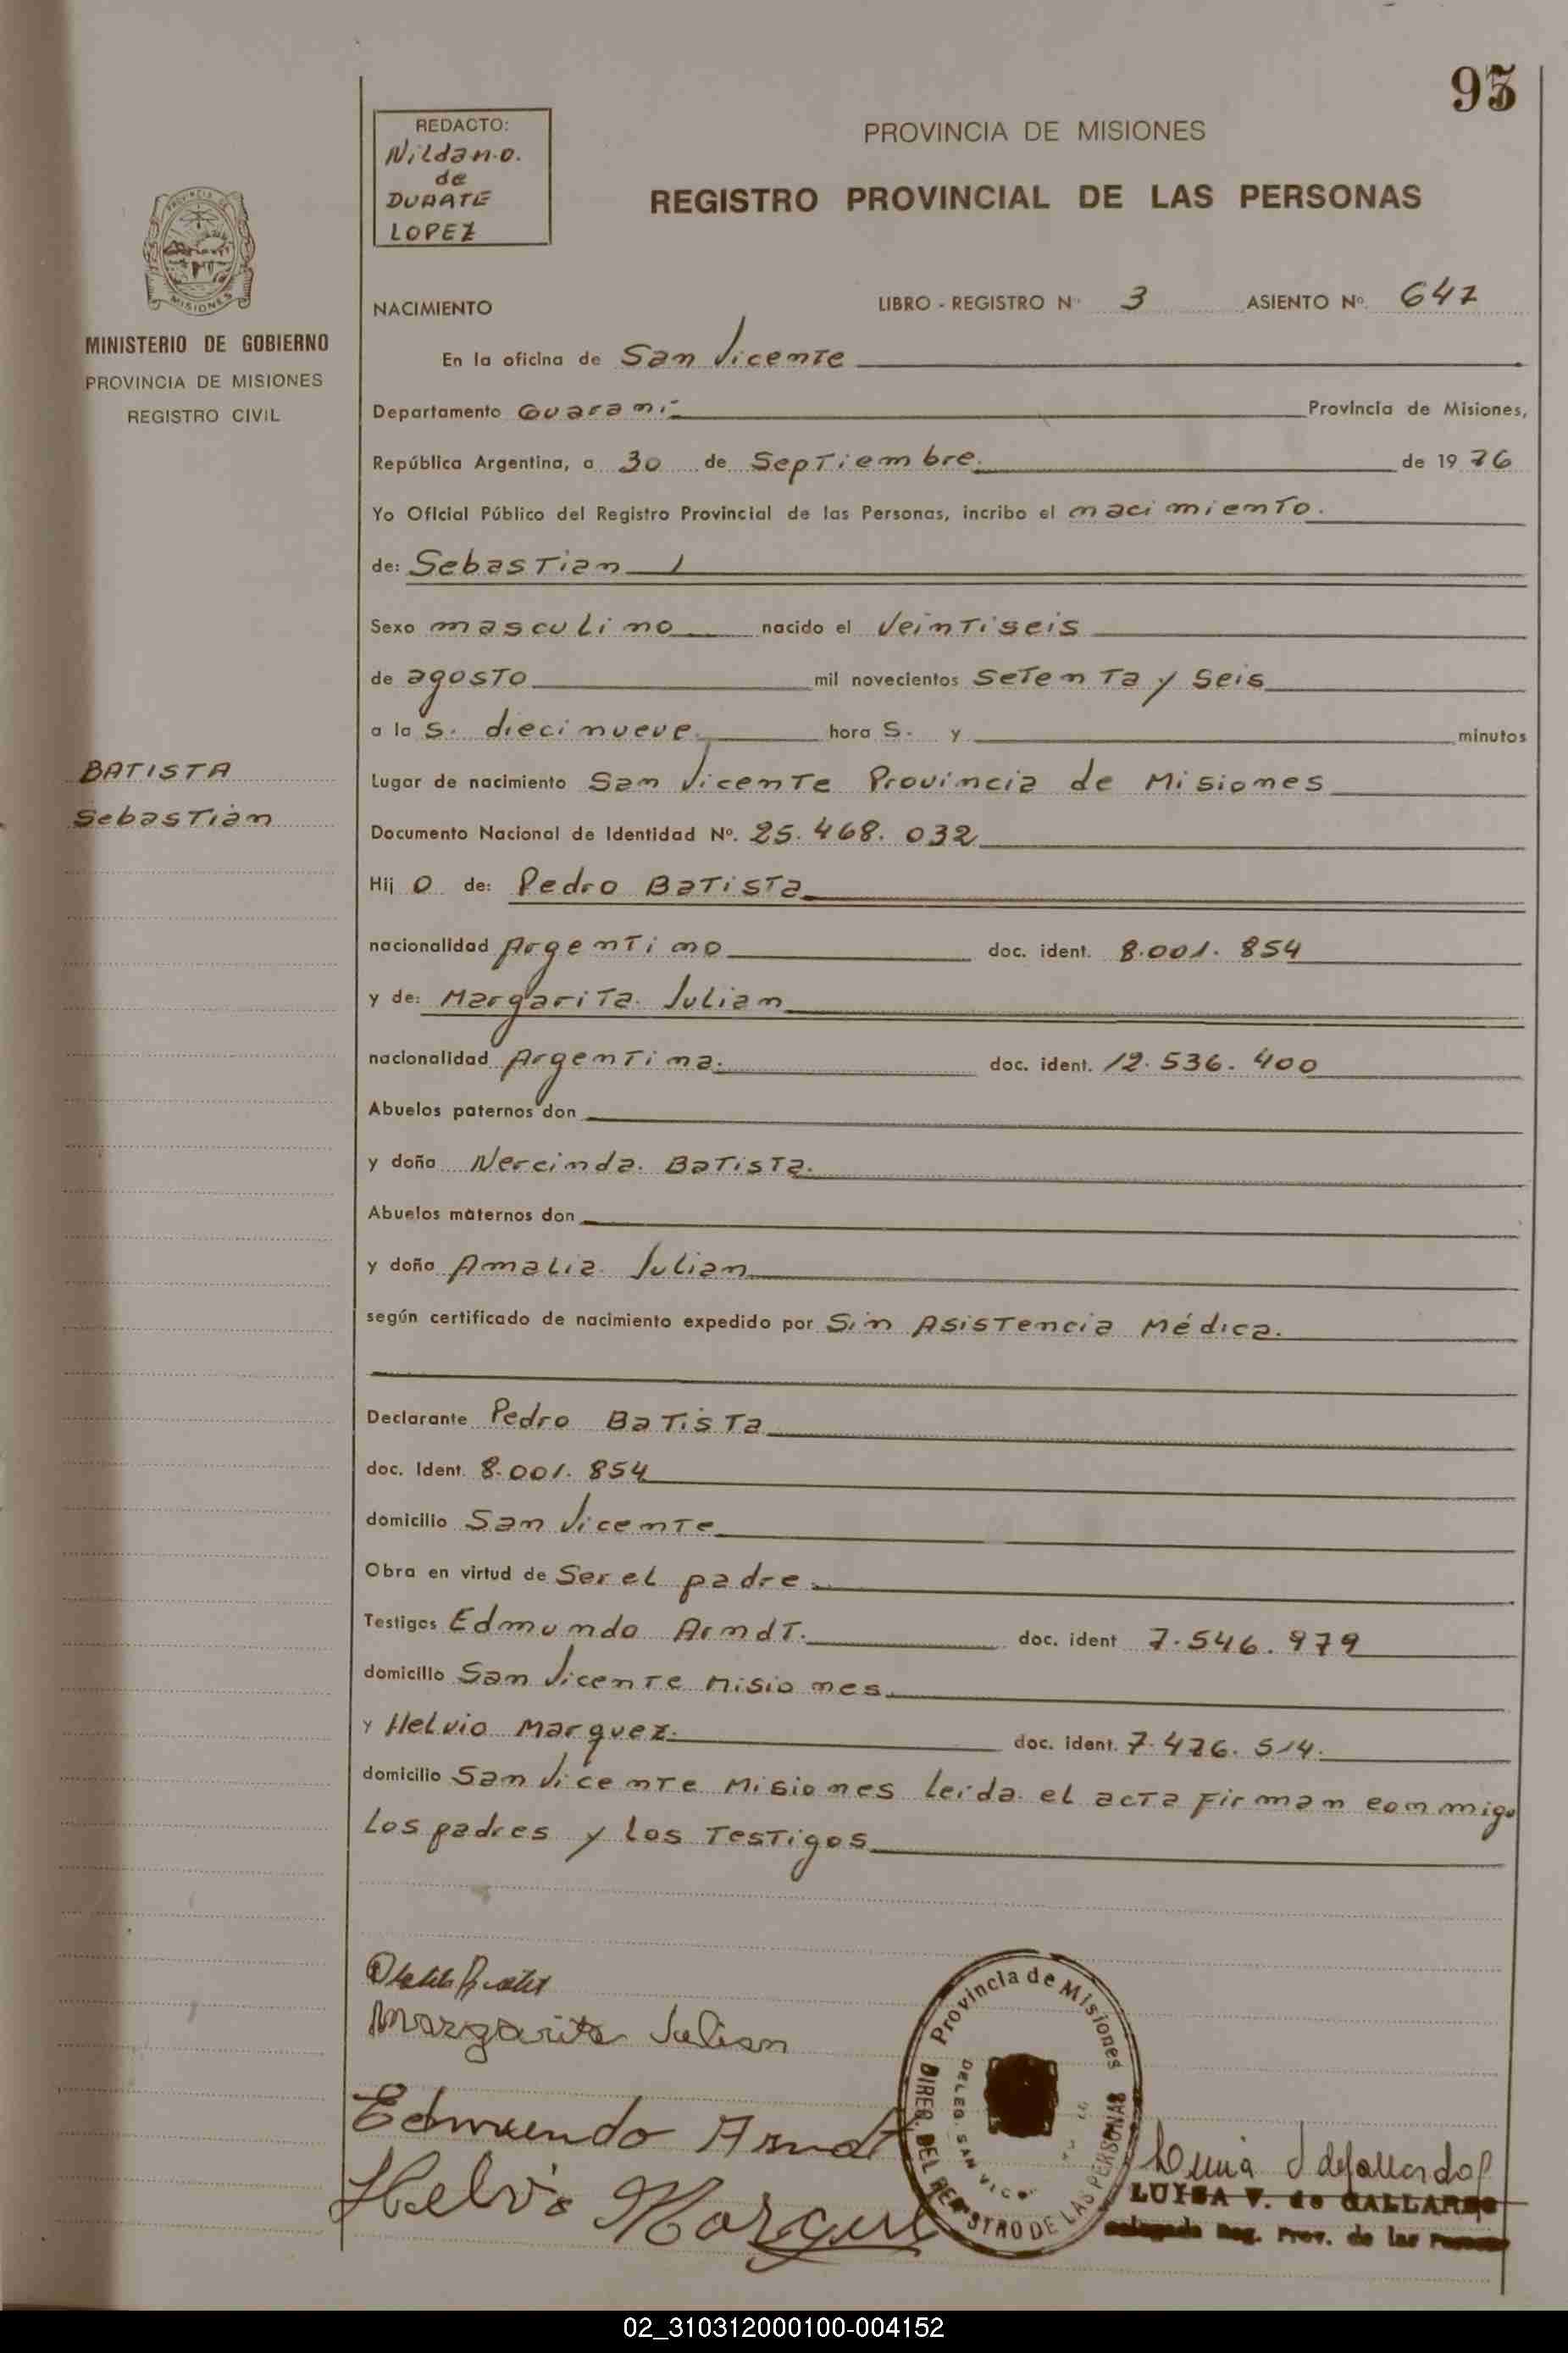 93
REDACTO:
Nilda N.O.
de
DUARTE
LOPEZ
PROVINCIA DE MISIONES
REGISTRO PROVINCIAL DE LAS PERSONAS
MISIONES
MINISTERIO DE GOBIERNO
PROVINCIA DE MISIONES
REGISTRO CIVIL
NACIMIENTO LIBRO - REGISTRO Nº 3 ASIENTO Nº 647
En la oficina de San Vicente
Departamento Guaraní Provincia de Misiones,
República Argentina, a 30 de Septiembre. de 1976
Yo Oficial Público del Registro Provincial de las Personas, incribo el nacimiento.
de: Sebastian
Sexo masculino nacido el Veintiseis
de agosto mil novecientos setenta y seis
a la s. diecinueve. hora s. y minutos
BATISTA
Sebastián
Lugar de nacimiento San Vicente Provincia de Misiones
Documento Nacional de Identidad Nº. 25.468.032
Hij o de: Pedro Batista
nacionalidad Argentino doc. ident. 8.001.854
y de: Margarita Julian
nacionalidad Argentina. doc. ident. 12.536.400
Abuelos paternos don
y doña Nercinda Batista.
Abuelos maternos don
y doña Amalia Julian
según certificado de nacimiento expedido por Sin Asistencia Médica.
Declarante Pedro Batista
doc. Ident. 8.001.854
domicilio San Vicente
Obra en virtud de Ser el padre.
Testigos Edmundo Arndt. doc. ident 7.546.979
domicilio San Vicente Misiones
y Helvio Marquez. doc. ident. 7.476.514.
domicilio San Vicente Misiones leída el acta firman conmigo
los padres y los testigos
Margarita Julian
Edmundo Arndt
Helvio Marquez
Provincia de Misiones
DIREC. DEL REGISTRO DE LAS PERSONAS
DELEG. SAN VIC
LUISA V. de GALLARDO
Delegada Reg. Prov. de las Personas
02_310312000100-004152